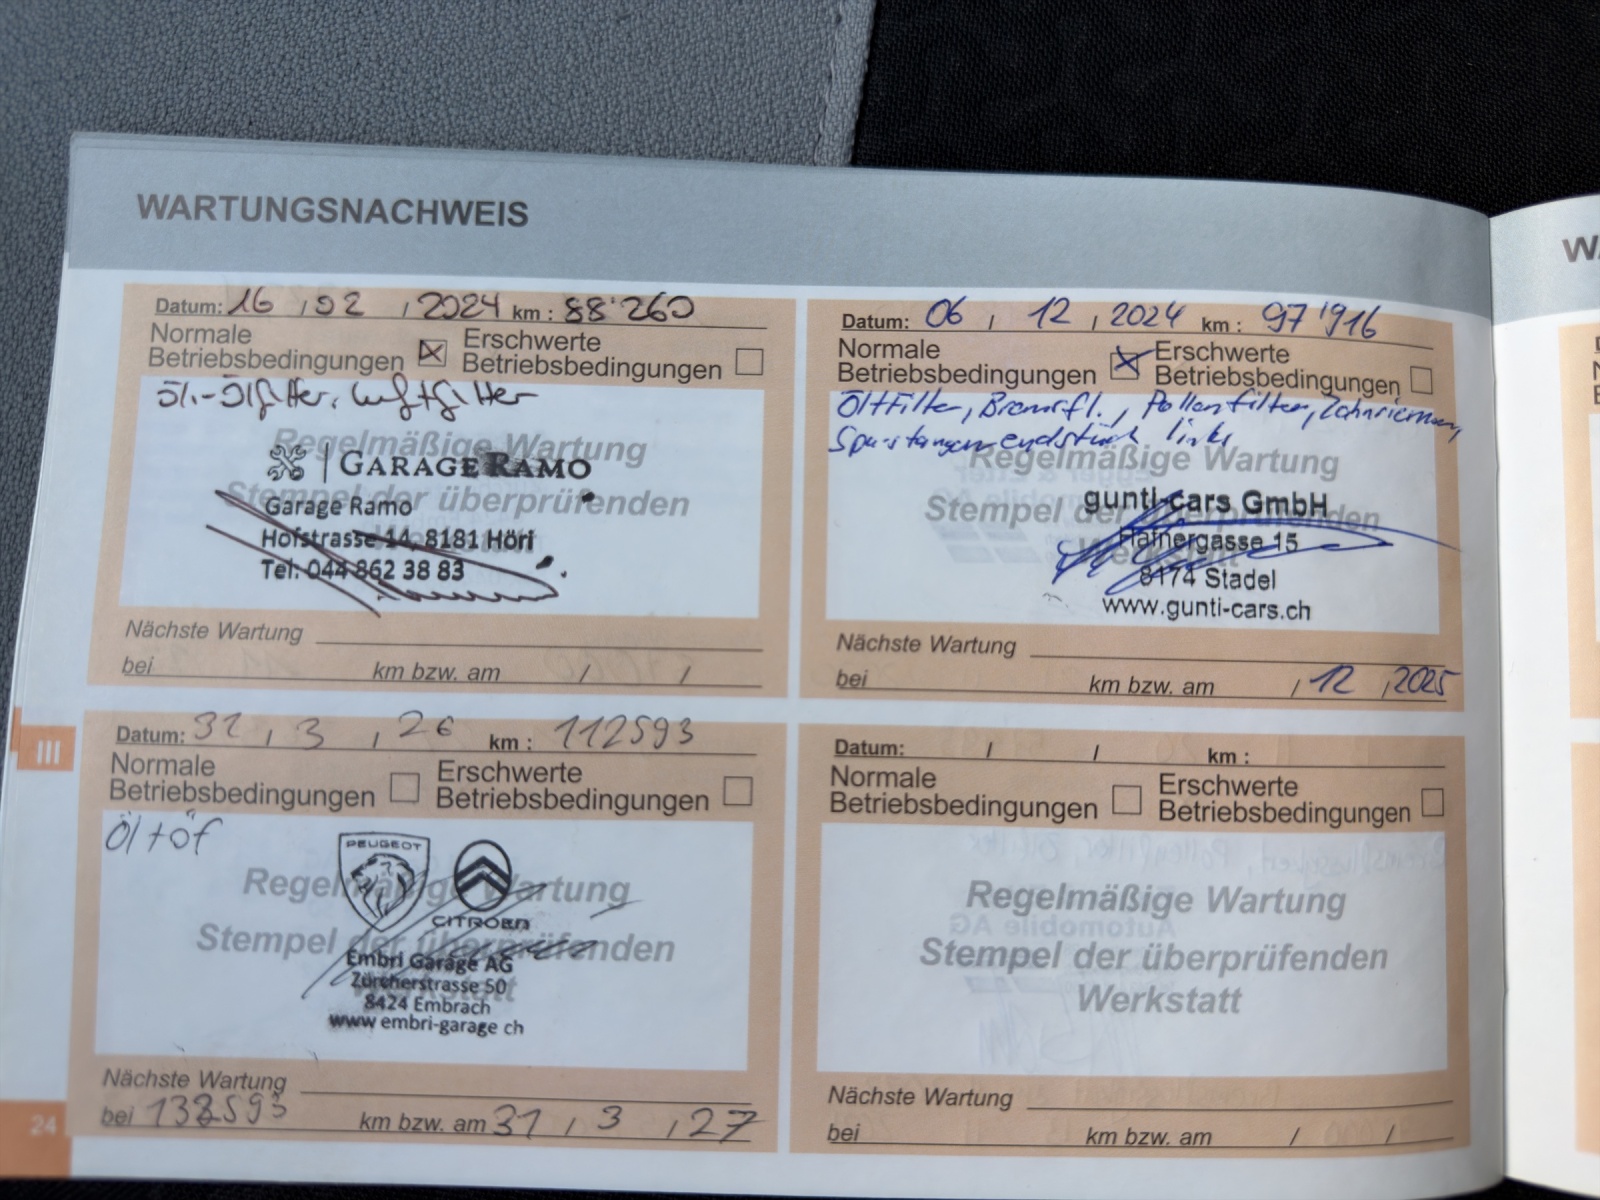 WARTUNGSNACHWEIS
Datum: 16 / 02 / 2024 km : 88'260
Normale Betriebsbedingungen ☒ Erschwerte Betriebsbedingungen ☐
Öl.-Ölfilter, Luftfilter
Regelmäßige Wartung
GARAGE RAMO
Stempel der überprüfenden
Garage Ramo
Hofstrasse 14, 8181 Höri
Tel: 044 862 38 83
Nächste Wartung
bei km bzw. am / /
Datum: 06 / 12 / 2024 km : 97'916
Normale Betriebsbedingungen ☒ Erschwerte Betriebsbedingungen ☐
Öl+Filter, Bremsfl., Pollenfilter, Zahnriemen,
Spurstangenendstück links
Regelmäßige Wartung
gunti-cars GmbH
Stempel der überprüfenden
Werkstatt
15
8174 Stadel
www.gunti-cars.ch
Nächste Wartung
bei km bzw. am / 12 / 2025
III
Datum: 31 / 3 / 26 km : 112593
Normale Betriebsbedingungen ☐ Erschwerte Betriebsbedingungen ☐
Öl + öf
PEUGEOT
CITROËN
Regelmäßige Wartung
Stempel der überprüfenden
Werkstatt
Embri Garage AG
Zürcherstrasse 50
8424 Embrach
www embri-garage ch
Nächste Wartung
bei 132593 km bzw. am 31 / 3 / 27
Datum: / / km :
Normale Betriebsbedingungen ☐ Erschwerte Betriebsbedingungen ☐
Regelmäßige Wartung
Stempel der überprüfenden
Werkstatt
Nächste Wartung
bei km bzw. am / /
24